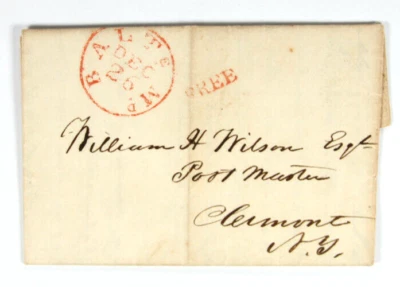 BALTE. Md
DEC
26
FREE
William H Wilson Esqr
Post Master
Clermont
N.Y.